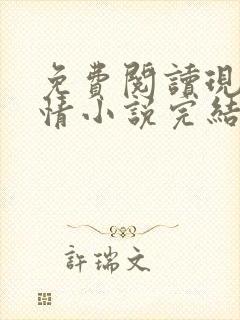 免費閱讀現
情小說完結
許瑞文